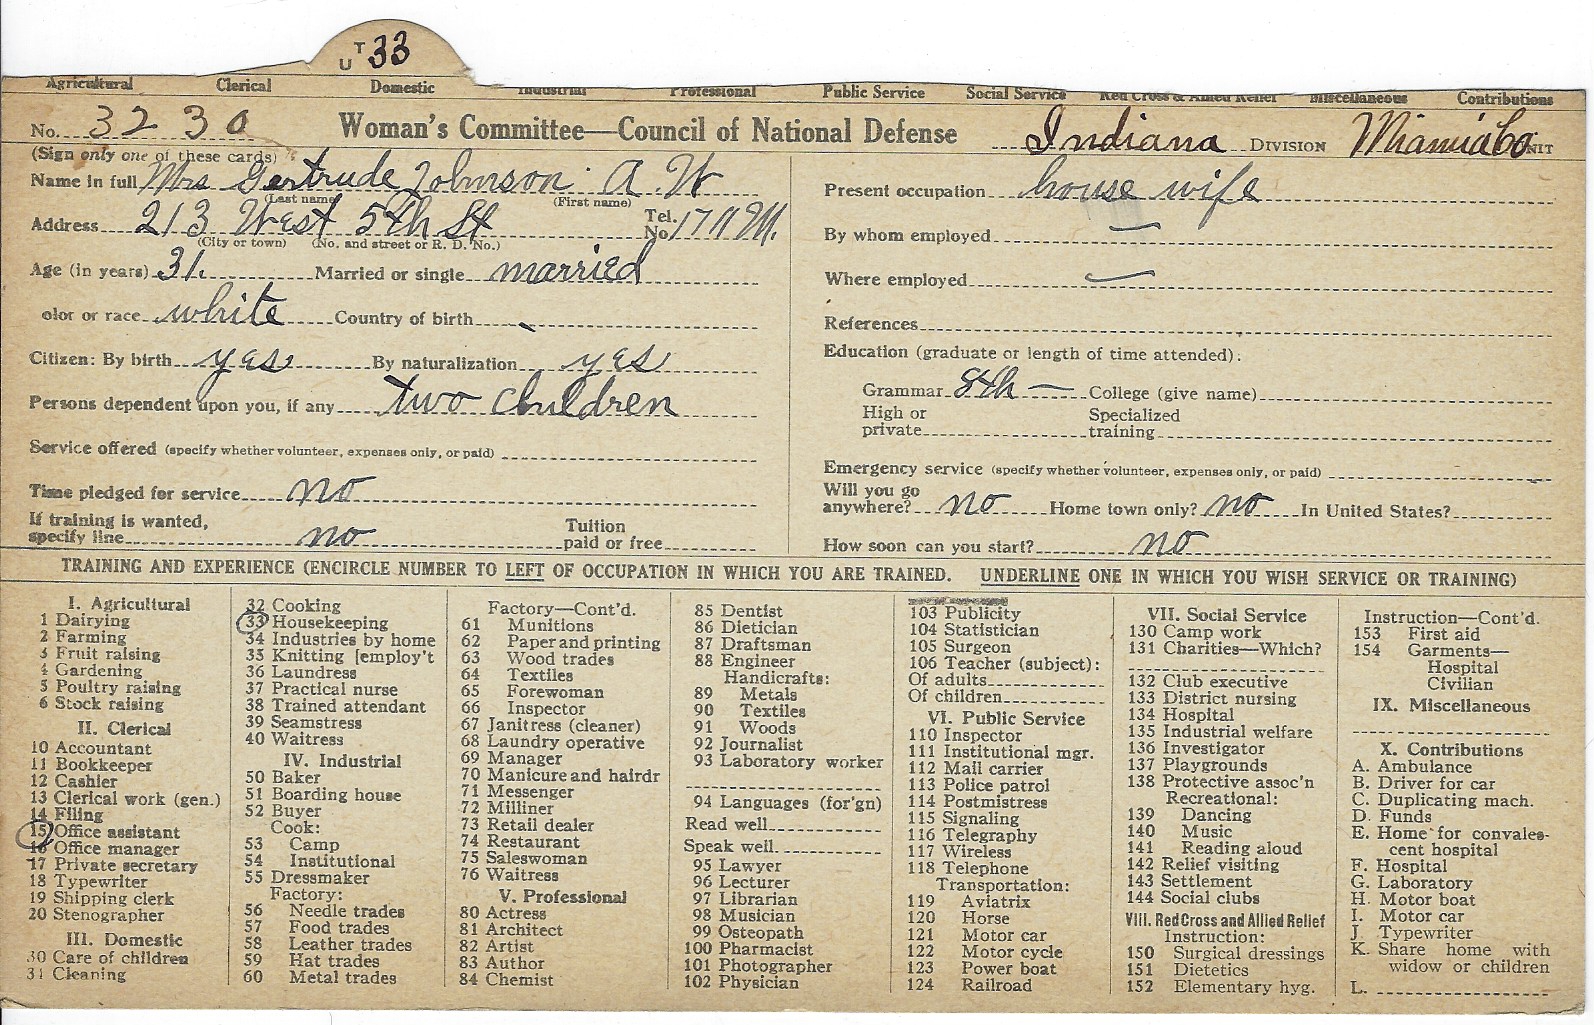 UT 33
Agricultural Clerical Domestic Industrial Professional Public Service Social Service Red Cross & Allied Relief Miscellaneous Contributions
No. 3230 Woman's Committee—Council of National Defense Indiana DIVISION Miami Co UNIT
(Sign only one of these cards)
Name in full Mrs Gertrude Johnson A. W
(Last name) (First name)
Address 213 West 5th St Tel. No. 1711 M.
(City or town) (No. and street or R. D. No.)
Age (in years) 31. Married or single married
olor or race white Country of birth
Citizen: By birth yes By naturalization yes
Persons dependent upon you, if any two children
Service offered (specify whether volunteer, expenses only, or paid)
Time pledged for service no
If training is wanted,
specify line no Tuition paid or free
Present occupation house wife
By whom employed —
Where employed —
References
Education (graduate or length of time attended):
Grammar 8th — College (give name)
High or private Specialized training
Emergency service (specify whether volunteer, expenses only, or paid)
Will you go
anywhere? no Home town only? no In United States?
How soon can you start? no
TRAINING AND EXPERIENCE (ENCIRCLE NUMBER TO LEFT OF OCCUPATION IN WHICH YOU ARE TRAINED. UNDERLINE ONE IN WHICH YOU WISH SERVICE OR TRAINING)
I. Agricultural
1 Dairying
2 Farming
3 Fruit raising
4 Gardening
5 Poultry raising
6 Stock raising
II. Clerical
10 Accountant
11 Bookkeeper
12 Cashier
13 Clerical work (gen.)
14 Filing
15 Office assistant
16 Office manager
17 Private secretary
18 Typewriter
19 Shipping clerk
20 Stenographer
III. Domestic
30 Care of children
31 Cleaning
32 Cooking
33 Housekeeping
34 Industries by home
35 Knitting [employ't
36 Laundress
37 Practical nurse
38 Trained attendant
39 Seamstress
40 Waitress
IV. Industrial
50 Baker
51 Boarding house
52 Buyer
Cook:
53 Camp
54 Institutional
55 Dressmaker
Factory:
56 Needle trades
57 Food trades
58 Leather trades
59 Hat trades
60 Metal trades
Factory—Cont'd.
61 Munitions
62 Paper and printing
63 Wood trades
64 Textiles
65 Forewoman
66 Inspector
67 Janitress (cleaner)
68 Laundry operative
69 Manager
70 Manicure and hairdr
71 Messenger
72 Milliner
73 Retail dealer
74 Restaurant
75 Saleswoman
76 Waitress
V. Professional
80 Actress
81 Architect
82 Artist
83 Author
84 Chemist
85 Dentist
86 Dietician
87 Draftsman
88 Engineer
Handicrafts:
89 Metals
90 Textiles
91 Woods
92 Journalist
93 Laboratory worker
94 Languages (for'gn)
Read well
Speak well
95 Lawyer
96 Lecturer
97 Librarian
98 Musician
99 Osteopath
100 Pharmacist
101 Photographer
102 Physician
103 Publicity
104 Statistician
105 Surgeon
106 Teacher (subject):
Of adults
Of children
VI. Public Service
110 Inspector
111 Institutional mgr.
112 Mail carrier
113 Police patrol
114 Postmistress
115 Signaling
116 Telegraphy
117 Wireless
118 Telephone
Transportation:
119 Aviatrix
120 Horse
121 Motor car
122 Motor cycle
123 Power boat
124 Railroad
VII. Social Service
130 Camp work
131 Charities—Which?
132 Club executive
133 District nursing
134 Hospital
135 Industrial welfare
136 Investigator
137 Playgrounds
138 Protective assoc'n
Recreational:
139 Dancing
140 Music
141 Reading aloud
142 Relief visiting
143 Settlement
144 Social clubs
VIII. Red Cross and Allied Relief
Instruction:
150 Surgical dressings
151 Dietetics
152 Elementary hyg.
Instruction—Cont'd.
153 First aid
154 Garments—
Hospital
Civilian
IX. Miscellaneous
X. Contributions
A. Ambulance
B. Driver for car
C. Duplicating mach.
D. Funds
E. Home for convales-
cent hospital
F. Hospital
G. Laboratory
H. Motor boat
I. Motor car
J. Typewriter
K. Share home with
widow or children
L.